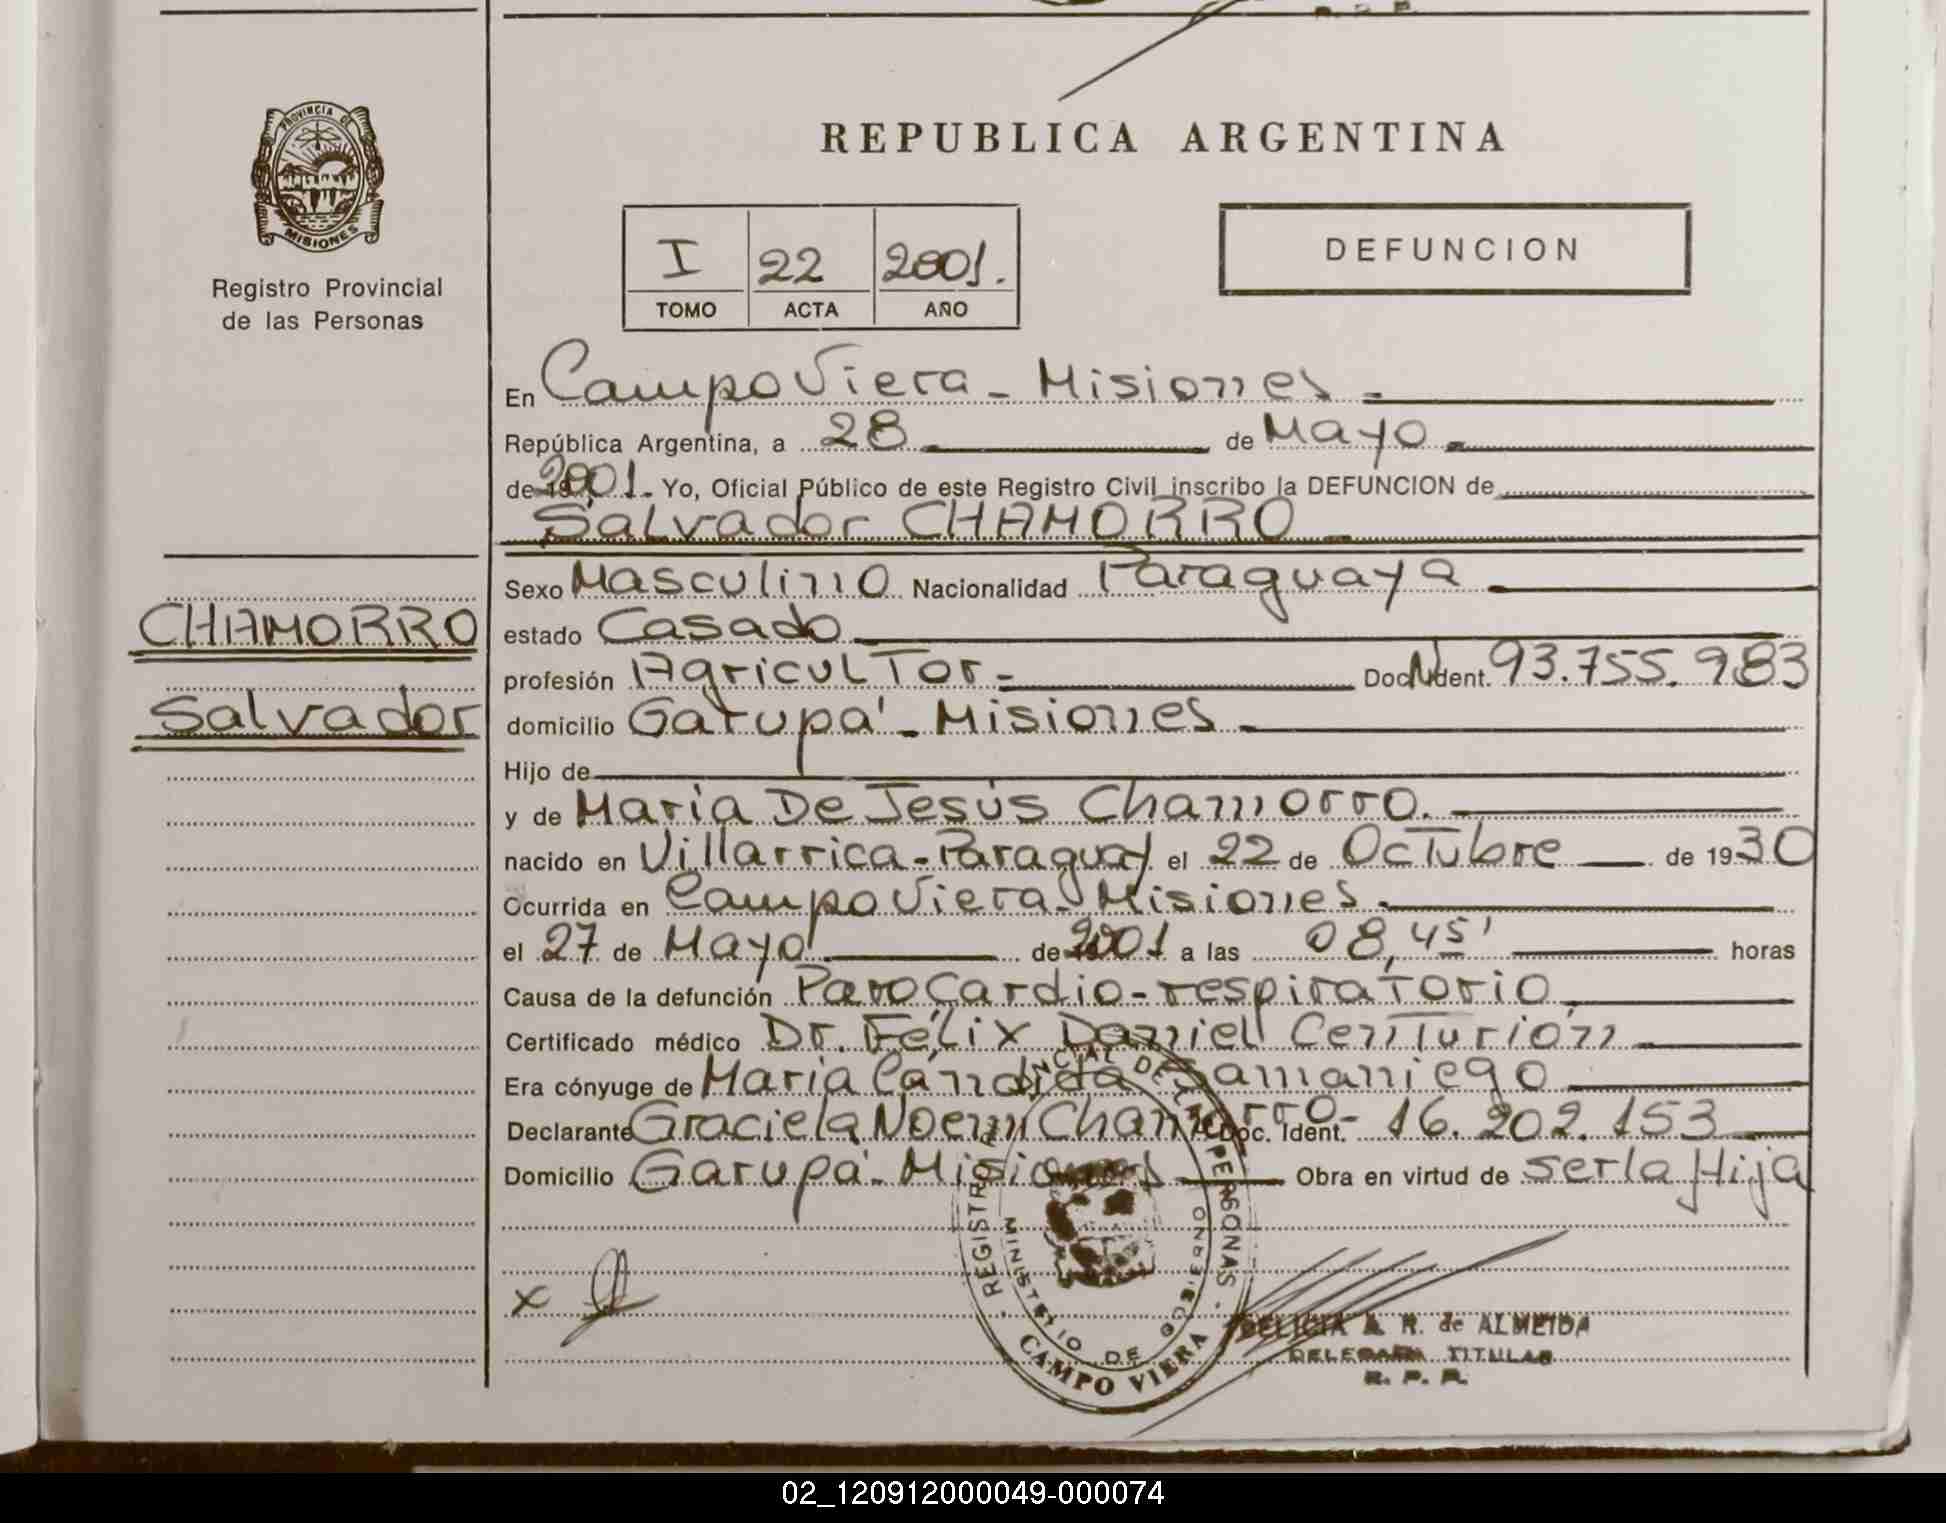 REPUBLICA ARGENTINA
PROVINCIA DE
MISIONES
Registro Provincial
de las Personas
I 22 2001.
TOMO ACTA AÑO
DEFUNCION
En Campo Viera - Misiones -
República Argentina, a 28 de Mayo
de 2001. Yo, Oficial Público de este Registro Civil inscribo la DEFUNCION de
Salvador CHAMORRO
CHAMORRO
Salvador
Sexo Masculino Nacionalidad Paraguaya
estado Casado
profesión Agricultor - Doc. Ident. 93.755.983
domicilio Garupá - Misiones
Hijo de
y de Maria De Jesús Chamorro.
nacido en Villarrica - Paraguay el 22 de Octubre de 1930
Ocurrida en Campo Viera - Misiones
el 27 de Mayo de 2001 a las 08,45' horas
Causa de la defunción Paro Cardio-respiratorio
Certificado médico Dr. Félix Daniel Centurión
Era cónyuge de Maria Cándida Samaniego
Declarante Graciela Noemi Chamorro - Doc. Ident. 16.202.153
Domicilio Garupá - Misiones Obra en virtud de ser la Hija
REGISTRO PROVINCIAL DE LAS PERSONAS
MINISTERIO DE GOBIERNO
CAMPO VIERA
x
DELICIA A. R. de ALMEIDA
DELEGADA TITULAR
R. P. P.
02_120912000049-000074